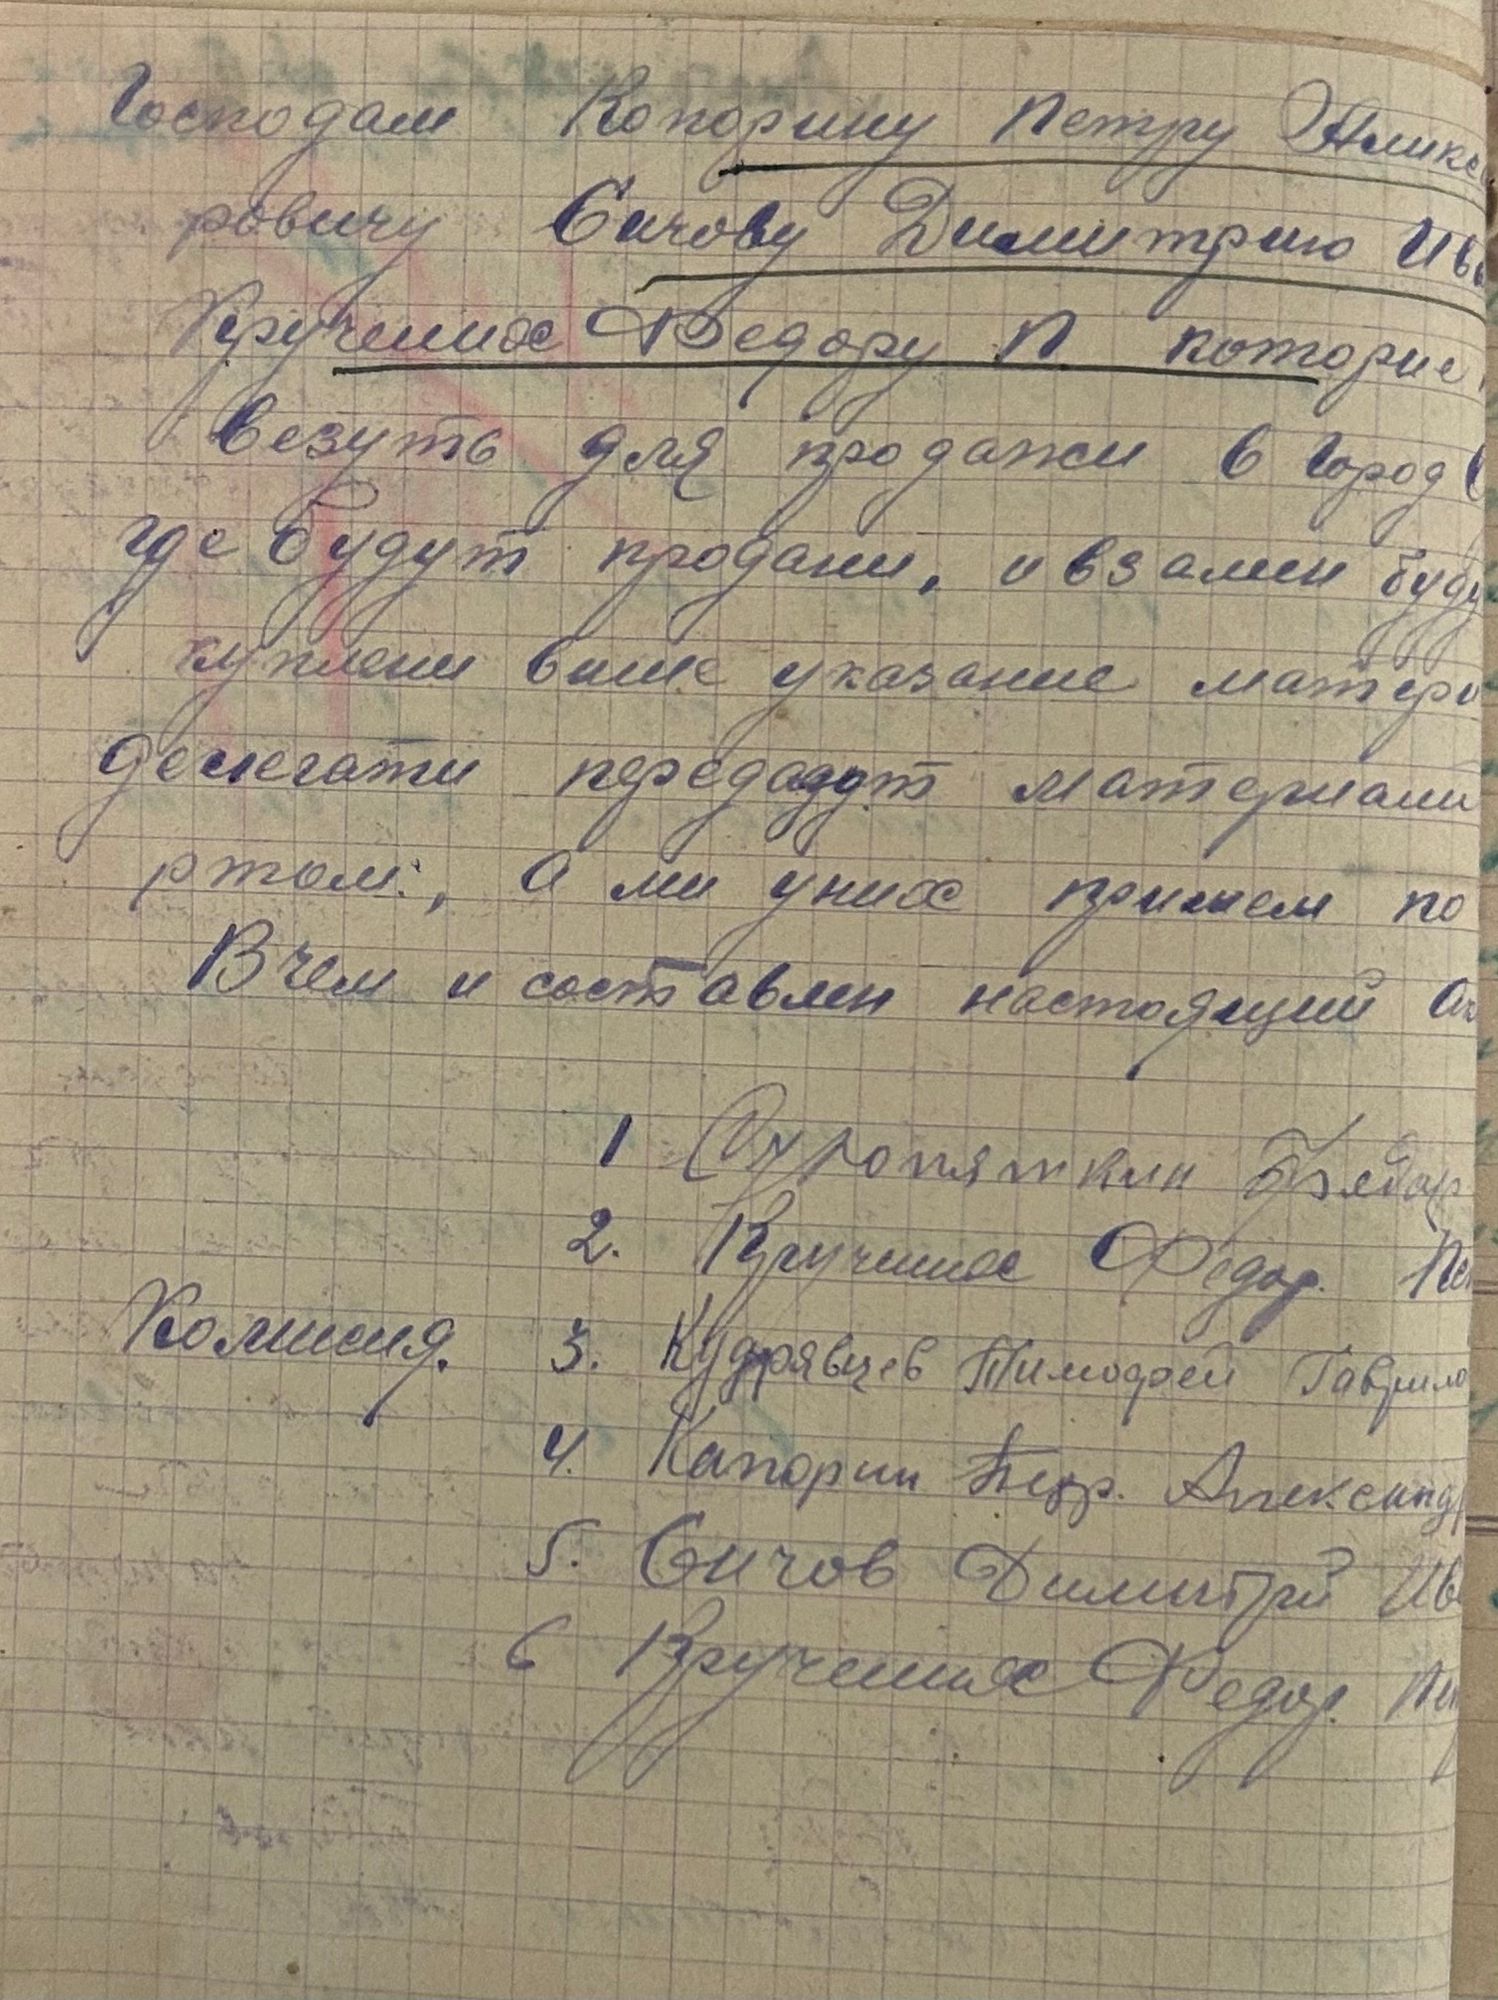 Господам Копорину Петру Аликс
ровичу Сичову Димитрию Ив
Кручених Федору П которие
везуть для продажи в город
где будут продани, и взамен буду
куплени више указание матери
делегати передадут материали
ртом, а ми уних примем по
В чем и составлен настоящий Ак
1 Сухопяткин
2. Кручених Федор. Пет
Комисия. 3. Кудрявцев Тимофей Гаврило
4. Капорин Петр. Александр
5. Сичов Димитрй Ив
6 Кручених Федор. Пет